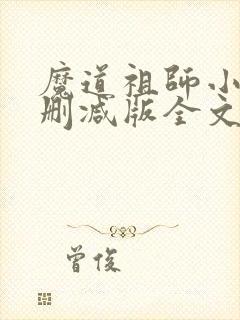 魔道祖师小
删减版全文
曾俊